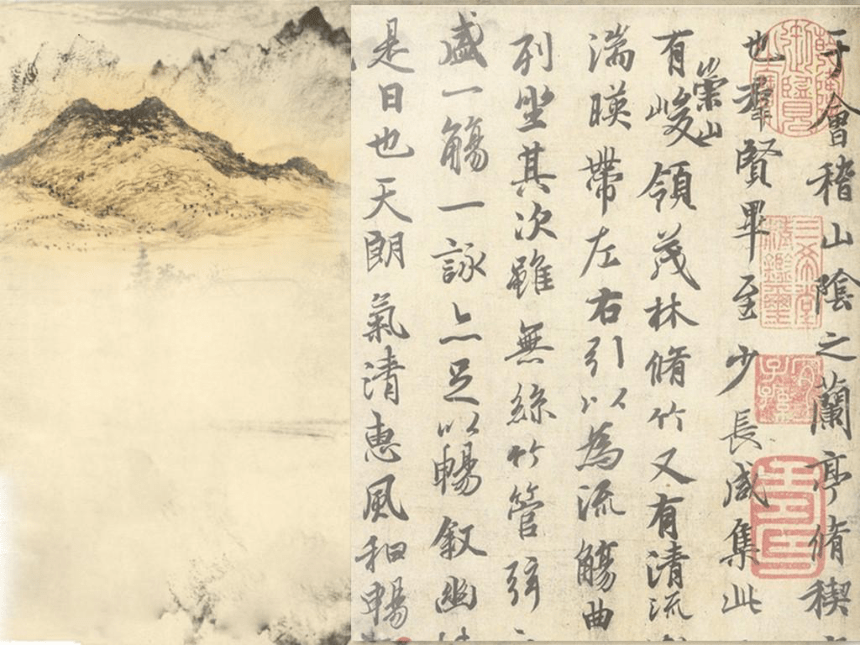 于會稽山陰之蘭亭脩稧
也群賢畢至少長咸集此
有崇山峻領茂林脩竹又有清流
湍暎帶左右引以為流觴曲
列坐其次雖無絲竹管弦
盛一觴一詠亦足以暢敘幽
是日也天朗氣清惠風和暢